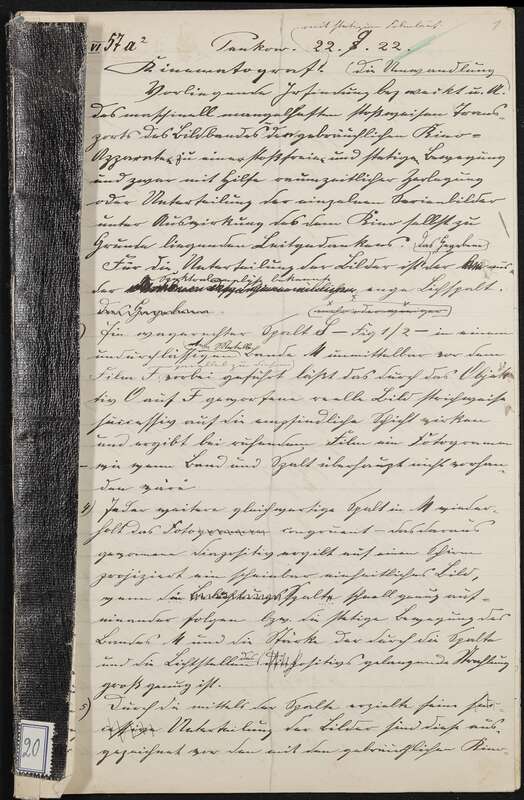 mit stetigem Filmlauf
1
VI 57 a² Pankow. 22. 9. 22.
Kinematograf. die Umwandlung
Vorliegende Erfindung bezweckt u. A.
des maschinell mangelhaften stoßweisen Trans-
ports des Bildbandes der gebräuchlichen Kino-
Apparate zu einer stoßfreien und stetigen Bewegung
und zwar mit Hilfe raumzeitlicher Zerlegung
oder Unterteilung der einzelnen Serienbilder
unter Auswirkung des dem Kino selbst zu
Grunde liegenden Leitgedankens. das Gegebene
Für die Unterteilung der Bilder ist der
der enge Lichtspalt.
das Gegebene. mehr oder weniger
Ein wagerechter Spalt S – Fig 1/2 – in einem
undurchlässigen Bande M unmittelbar vor dem
Film F vorbei geführt läßt das durch das Objek-
tiv O auf F geworfene reelle Bild strichweise
successiv auf die empfindliche Schicht wirken
und ergibt bei ruhendem Film ein Fotogramm
wie wenn Band und Spalt überhaupt nicht vorhan-
den wäre
4) Jeder weitere gleichwertige Spalt in M wieder-
holt das Fotogramm congruent – das daraus
gewonnene Diapositiv ergibt auf einen Schirm
projiziert ein scheinbar einheitliches Bild,
wenn die Spalte schnell genug auf-
einander folgen bzw. die stetige Bewegung des
Bandes M und die Stärke der durch die Spalte
und die Lichtstellen des Positivs gelangende Strahlung
groß genug ist.
5) Durch die mittels der Spalte erzielte feine
Unterteilung der Bilder sind diese aus-
gezeichnet vor den mit den gebräuchlichen Kino-
20